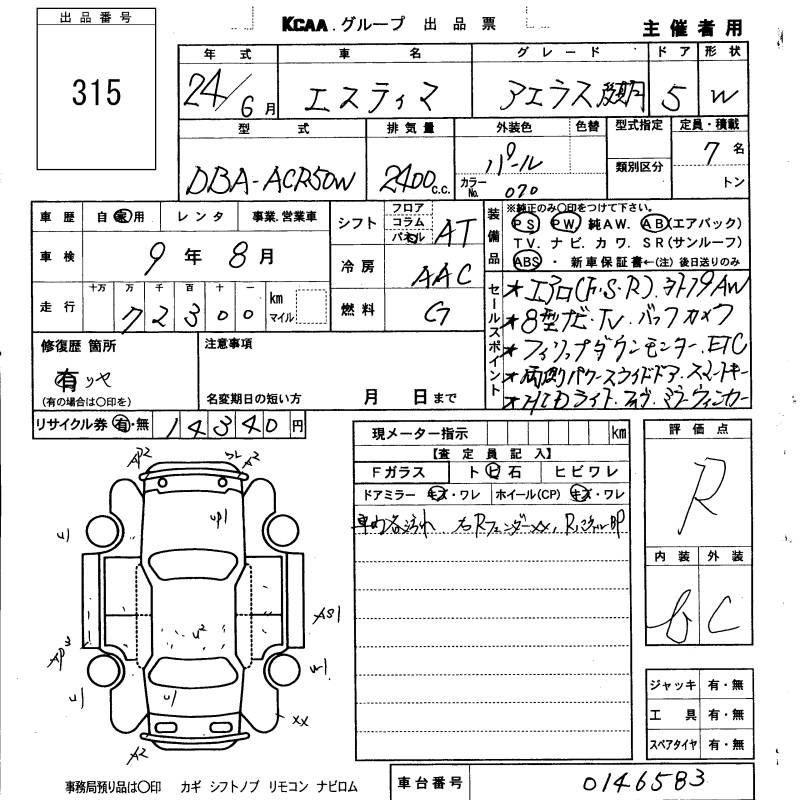 出品番号
315
KCAA.グループ 出品票
主催者用
年式 車名 グレード ドア 形状
24/6月 エスティマ アエラス 5 W
型式 排気量 外装色 色替 型式指定 定員・積載
DBA-ACR50W 2400c.c. パール 7名
カラーNo. 070 類別区分 トン
車歴 自家用 レンタ 事業.営業車
車検 9年 8月
走行 十万 万 千 百 十 一 km マイル
72300
シフト フロア コラム パネル AT
冷房 AAC
燃料 G
装備品 ※純正のみ○印をつけて下さい。
PS PW 純AW. AB(エアバック)
TV. ナビ. カワ. SR(サンルーフ)
ABS ・ 新車保証書←(注)後日送りのみ
セールスポイント
★エアロ(F・S・R).ヨト19AW
★8型ナビ・TV.バックカメラ
★フィリップダウンモニター.ETC
★両側パワースライドドア.スマートキー
★HIDライト.フォグ.ミラーウィンカー
修復歴 箇所
有
(有の場合は○印を)
注意事項
名変期日の短い方 月 日まで
リサイクル券 有・無 14340円
現メーター指示 km
【査定員記入】
Fガラス トビ石 ヒビワレ
ドアミラー キズ・ワレ ホイール(CP) キズ・ワレ
車内各汚れ 右Rフェンダーxx,
評価点
R
内装 外装
b C
AP2 A2
UP1
U1
U2
AS1
U1
U1
XX
A2
ジャッキ 有・無
工具 有・無
スペアタイヤ 有・無
事務局預り品は○印 カギ シフトノブ リモコン ナビロム
車台番号 0146583